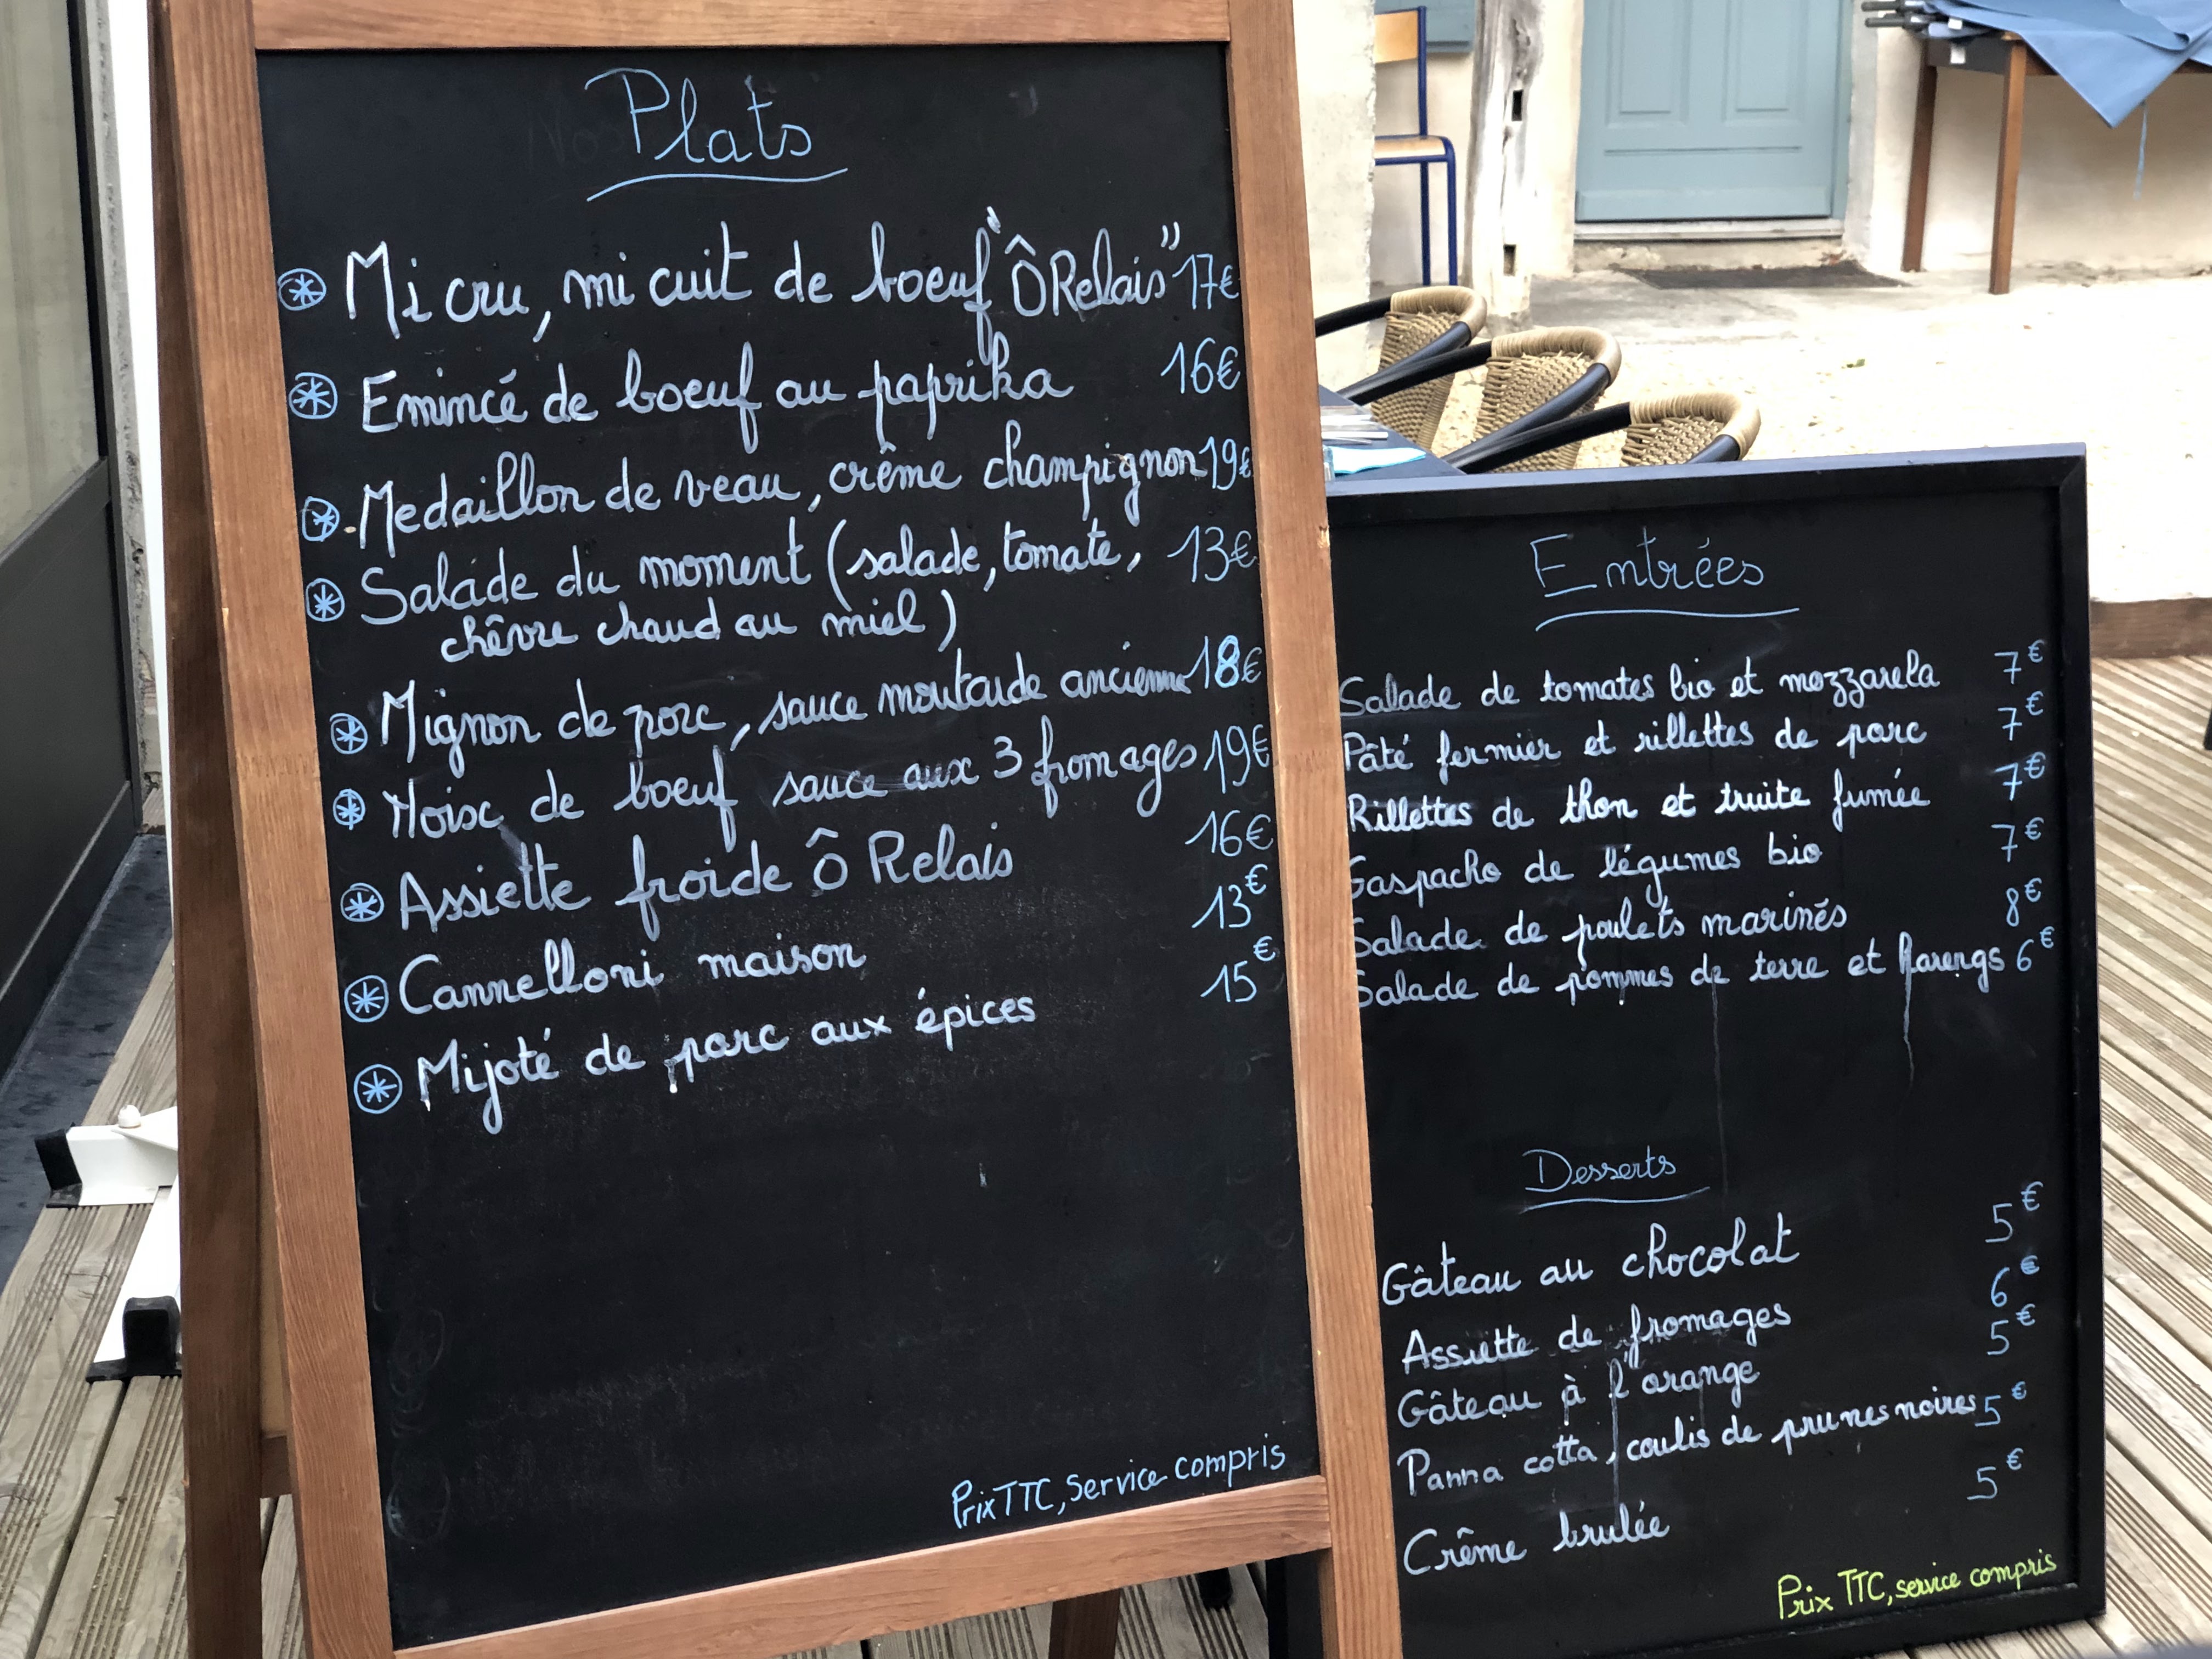 Plats
Mi cru, mi cuit de boeuf "Ô Relais" 17€
Emincé de boeuf au paprika 16€
Medaillon de veau, crême champignon 19€
Salade du moment (salade, tomate, 13€
chêvre chaud au miel)
Mignon de porc, sauce moutarde ancienne 18€
Noisc de boeuf sauce aux 3 fromages 19€
Assiette froide Ô Relais 16€
Cannelloni maison 13€
Mijoté de porc aux épices 15€
Prix TTC, service compris
Entrées
Salade de tomates bio et mozzarela 7€
Pâté fermier et rillettes de porc 7€
Rillettes de thon et truite fumée 7€
Gaspacho de légumes bio 7€
Salade de poulets marinés 8€
Salade de pommes de terre et harengs 6€
Desserts
Gâteau au chocolat 5€
Assiette de fromages 6€
Gâteau à l'orange 5€
Panna cotta, coulis de prunes noires 5€
Crême brulée 5€
Prix TTC, service compris